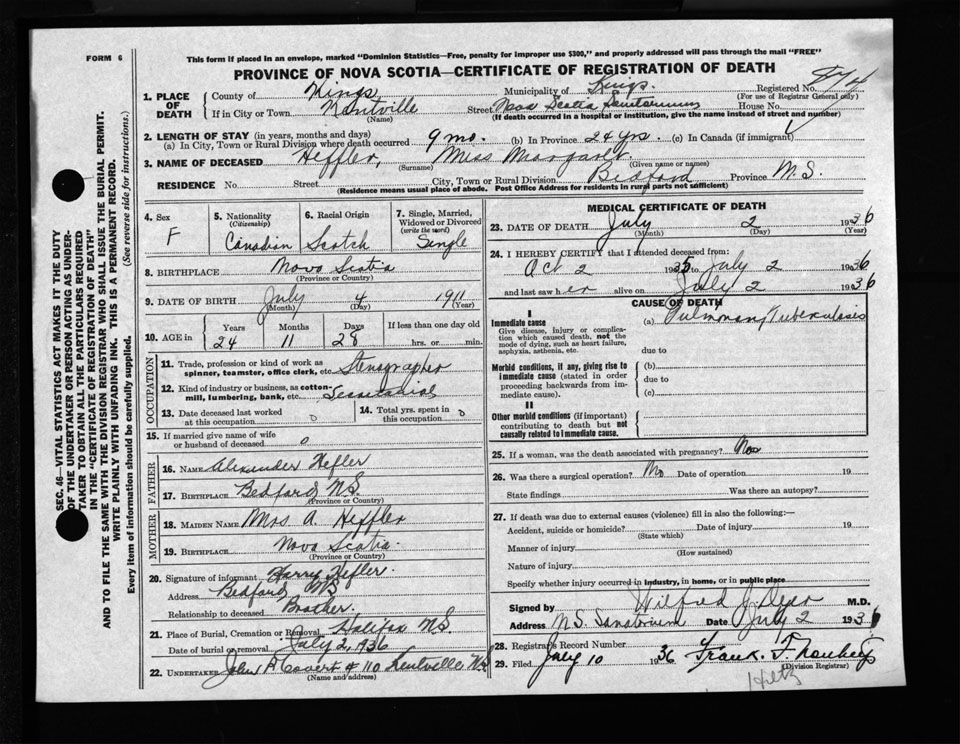 FORM 6
This form if placed in an envelope, marked "Dominion Statistics—Free, penalty for improper use $300," and properly addressed will pass through the mail "FREE"
PROVINCE OF NOVA SCOTIA—CERTIFICATE OF REGISTRATION OF DEATH
1. PLACE OF DEATH
County of Kings Municipality of Kings Registered No.
(For use of Registrar General only)
If in City or Town Kentville Street Nova Scotia Sanitorium House No.
(Name) (If death occurred in a hospital or institution, give the name instead of street and number)
2. LENGTH OF STAY (in years, months and days)
(a) In City, Town or Rural Division where death occurred 9 mo. (b) In Province 24 yrs. (c) In Canada (if immigrant)
3. NAME OF DECEASED Heffler, Miss Margaret
(Surname) (Given name or names)
RESIDENCE No. Street City, Town or Rural Division Bedford Province N.S.
(Residence means usual place of abode. Post Office Address for residents in rural parts not sufficient)
4. Sex
F
5. Nationality
(Citizenship)
Canadian
6. Racial Origin
Scotch
7. Single, Married, Widowed or Divorced
(write the word)
Single
8. BIRTHPLACE Nova Scotia
(Province or Country)
9. DATE OF BIRTH July 4 1911
(Month) (Day) (Year)
10. AGE in Years Months Days If less than one day old
24 11 28 hrs. or min.
OCCUPATION
11. Trade, profession or kind of work as spinner, teamster, office clerk, etc. Stenographer
12. Kind of industry or business, as cotton-mill, lumbering, bank, etc. Secretarial
13. Date deceased last worked at this occupation 0
14. Total yrs. spent in this occupation 0
15. If married give name of wife or husband of deceased 0
FATHER
16. NAME Alexander Hefler
17. BIRTHPLACE Bedford N.S.
(Province or Country)
MOTHER
18. MAIDEN NAME Mrs A. Heffler
19. BIRTHPLACE Nova Scotia.
(Province or Country)
20. Signature of informant Harry Hefler.
Address Bedford NS
Relationship to deceased Brother.
21. Place of Burial, Cremation or Removal Halifax N.S.
Date of burial or removal July 2, 1936
22. UNDERTAKER John A Covert # 110 Kentville NS
(Name and address)
MEDICAL CERTIFICATE OF DEATH
23. DATE OF DEATH July 2 1936
(Month) (Day) (Year)
24. I HEREBY CERTIFY that I attended deceased from:
Oct 2 1935 to July 2 1936
and last saw her alive on July 2 1936
CAUSE OF DEATH
I
Immediate cause (a) Pulmonary Tuberculosis
Give disease, injury or complication which caused death, not the mode of dying, such as heart failure, asphyxia, asthenia, etc.
due to
Morbid conditions, if any, giving rise to immediate cause (stated in order proceeding backwards from immediate cause).
(b)
due to
(c)
II
Other morbid conditions (if important) contributing to death but not causally related to immediate cause.
25. If a woman, was the death associated with pregnancy?
26. Was there a surgical operation? No Date of operation 19
State findings Was there an autopsy?
27. If death was due to external causes (violence) fill in also the following:—
Accident, suicide or homicide? Date of injury 19
(State which)
Manner of injury
(How sustained)
Nature of injury
Specify whether injury occurred in industry, in home, or in public place
Signed by Wilfred J. Dyer M.D.
Address N.S. Sanatorium Date July 2 1936
28. Registrar's Record Number
29. Filed July 10 1936 Frank F.
(Division Registrar)
Hiltz
SEC. 46—VITAL STATISTICS ACT MAKES IT THE DUTY
OF THE UNDERTAKER OR PERSON ACTING AS UNDER-
TAKER TO OBTAIN ALL THE PARTICULARS REQUIRED
IN THE "CERTIFICATE OF REGISTRATION OF DEATH"
AND TO FILE THE SAME WITH THE DIVISION REGISTRAR WHO SHALL ISSUE THE BURIAL PERMIT.
WRITE PLAINLY WITH UNFADING INK. THIS IS A PERMANENT RECORD.
Every item of information should be carefully supplied. (See reverse side for instructions.)